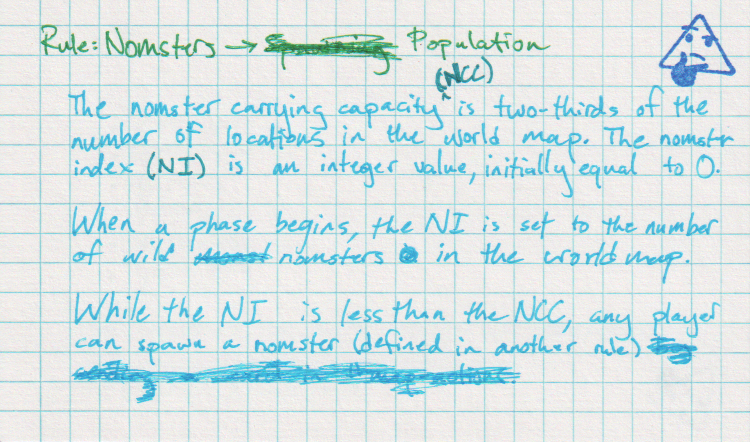 Rule: Nomsters → Population
(NCC)
The nomster carrying capacity ^ is two-thirds of the
number of locations in the world map. The nomstr
index (NI) is an integer value, initially equal to 0.
When a phase begins, the NI is set to the number
of wild nomsters in the world map.
While the NI is less than the NCC, any player
can spawn a nomster (defined in another rule)